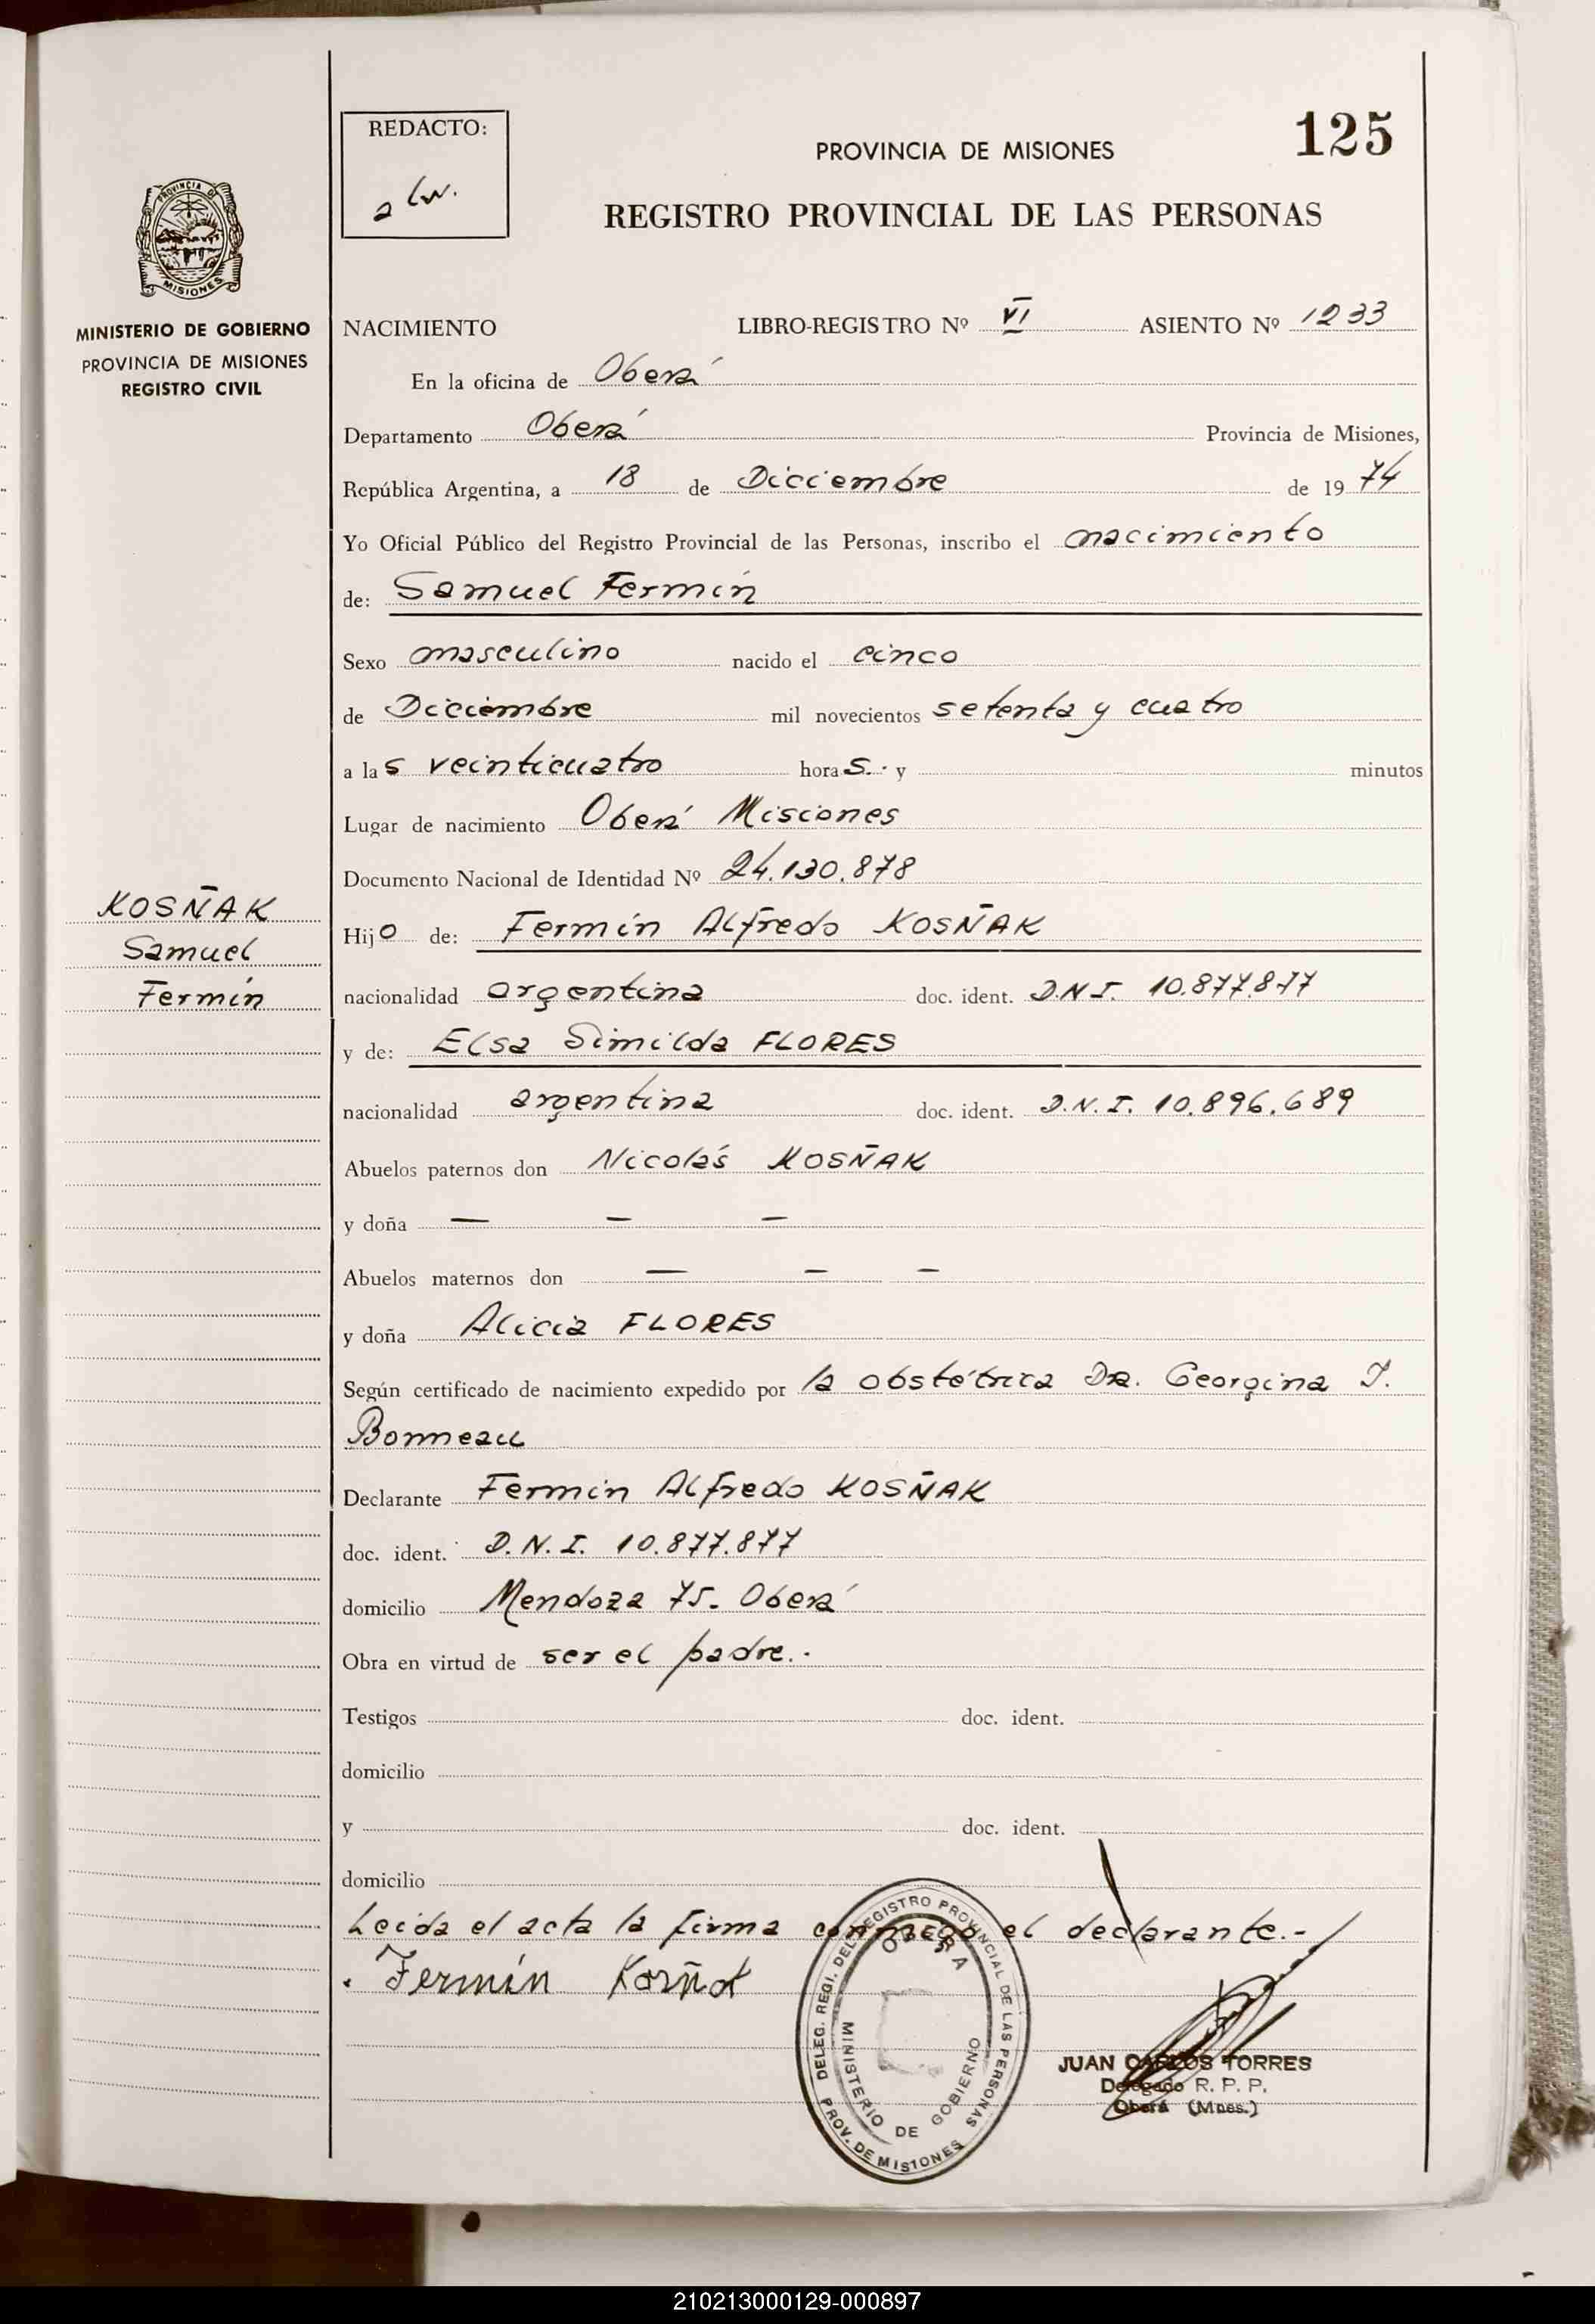 REDACTO:
125
PROVINCIA DE MISIONES
REGISTRO PROVINCIAL DE LAS PERSONAS
PROVINCIA DE
MISIONES
MINISTERIO DE GOBIERNO
PROVINCIA DE MISIONES
REGISTRO CIVIL
NACIMIENTO LIBRO-REGISTRO Nº VI ASIENTO Nº 1233
En la oficina de Oberá
Departamento Oberá Provincia de Misiones,
República Argentina, a 18 de Diciembre de 1974
Yo Oficial Público del Registro Provincial de las Personas, inscribo el nacimiento
de: Samuel Fermín
Sexo masculino nacido el cinco
de Diciembre mil novecientos setenta y cuatro
a las veinticuatro horas.- y minutos
Lugar de nacimiento Oberá Misiones
Documento Nacional de Identidad Nº 24.130.878
KOSÑAK
Samuel
Fermín
Hijo de: Fermín Alfredo KOSÑAK
nacionalidad argentina doc. ident. D.N.I. 10.877.877
y de: Elsa Similda FLORES
nacionalidad argentina doc. ident. D.N.I. 10.896.689
Abuelos paternos don Nicolás KOSÑAK
y doña — — —
Abuelos maternos don — — —
y doña Alicia FLORES
Según certificado de nacimiento expedido por la obstétrica Dra. Georgina J.
Bonneau
Declarante Fermín Alfredo KOSÑAK
doc. ident. D.N.I. 10.877.877
domicilio Mendoza 75- Oberá
Obra en virtud de ser el padre.-
Testigos doc. ident.
domicilio
y doc. ident.
domicilio
Leida el acta la firma conmigo el declarante.-
Fermín Kosñak
DELEG. REGI. DEL REGISTRO PROVINCIAL DE LAS PERSONAS
OBERA
MINISTERIO DE GOBIERNO
PROV. DE MISIONES
JUAN CARLOS TORRES
Delegado R. P. P.
Oberá (Mnes.)
210213000129-000897